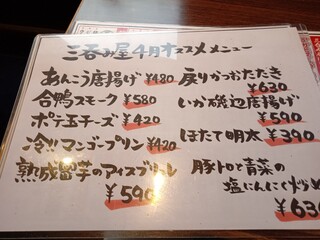 三呑み屋4月オススメメニュー
あんこう唐揚げ ¥480
合鴨スモーク ¥580
ポテ玉チーズ ¥420
冷!!マンゴープリン ¥420
熟成蜜芋のアイスブリュレ
¥590
戻りかつおたたき
¥630
いか磯辺唐揚げ
¥590
ほたて明太 ¥390
豚トロと青菜の
塩にんにく炒め
¥630